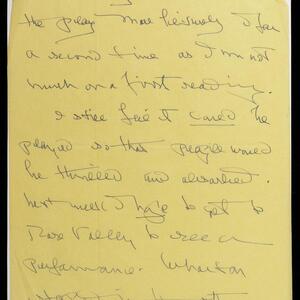 the play more leisurely & for
a second time as I'm not
much on a first reading.
I still feel it could be
played so that people would
be thrilled and absorbed.
Next week I have to get to
Rose Valley to see a
performance. Wharton